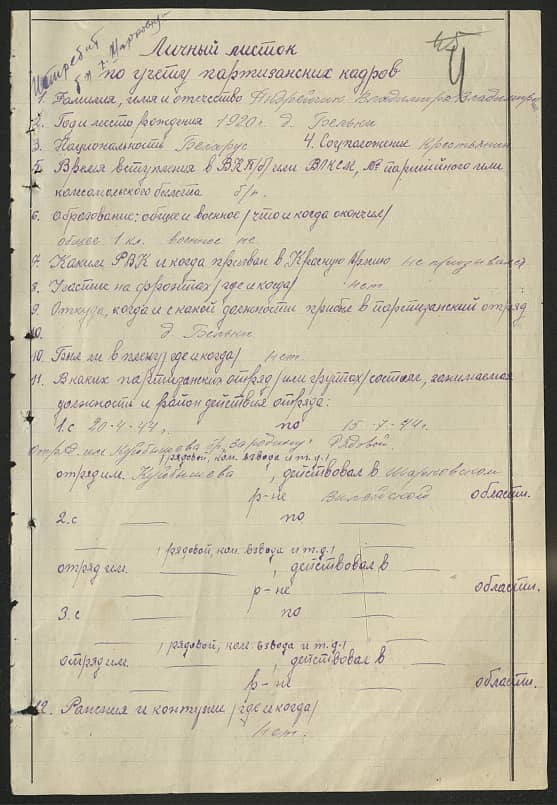 Истребит
Личный листок
по учету партизанских кадров
1. Фамилия, имя и отчество Андрейчик Владимир Владимиров
2. Год и место рождения 1920 г. д. Бельки
3. Национальность Беларус 4. Соцположение Крестьянин
5. Время вступления в ВКП/б/ или ВЛКСМ, № партийного или
комсомольского билета б/п.
6. Образование: общее и военное /что и когда окончил/
общее 1 кл. военное не
7. Каким РВК и когда призван в Красную Армию не призывался
8. Участие на фронтах /где и когда/ нет
9. Откуда, когда и с какой должности прибыл в партизанский отряд
10. д. Бельки
10. Был ли в плену /где и когда/ Нет
11. В каких партизанских отряд /или группах/ состоял, занимаемая
должность и район действия отряда:
1. с 20-4-44 г. по 15-7-44 г.
Отряд. им Куйбышева бр. За родину. Рядовой.
/рядовой, ком. взвода и т.д./
отряд им. Куйбышева, действовал в
р-не Вилейской области.
2. с по
/рядовой, ком. взвода и т.д./
отряд им. , действовал в
р-не области.
3. с по
/рядовой, ком. взвода и т.д./
отряд им. , действовал в
р-не области.
12. Ранения и контузии /где и когда/
Нет.